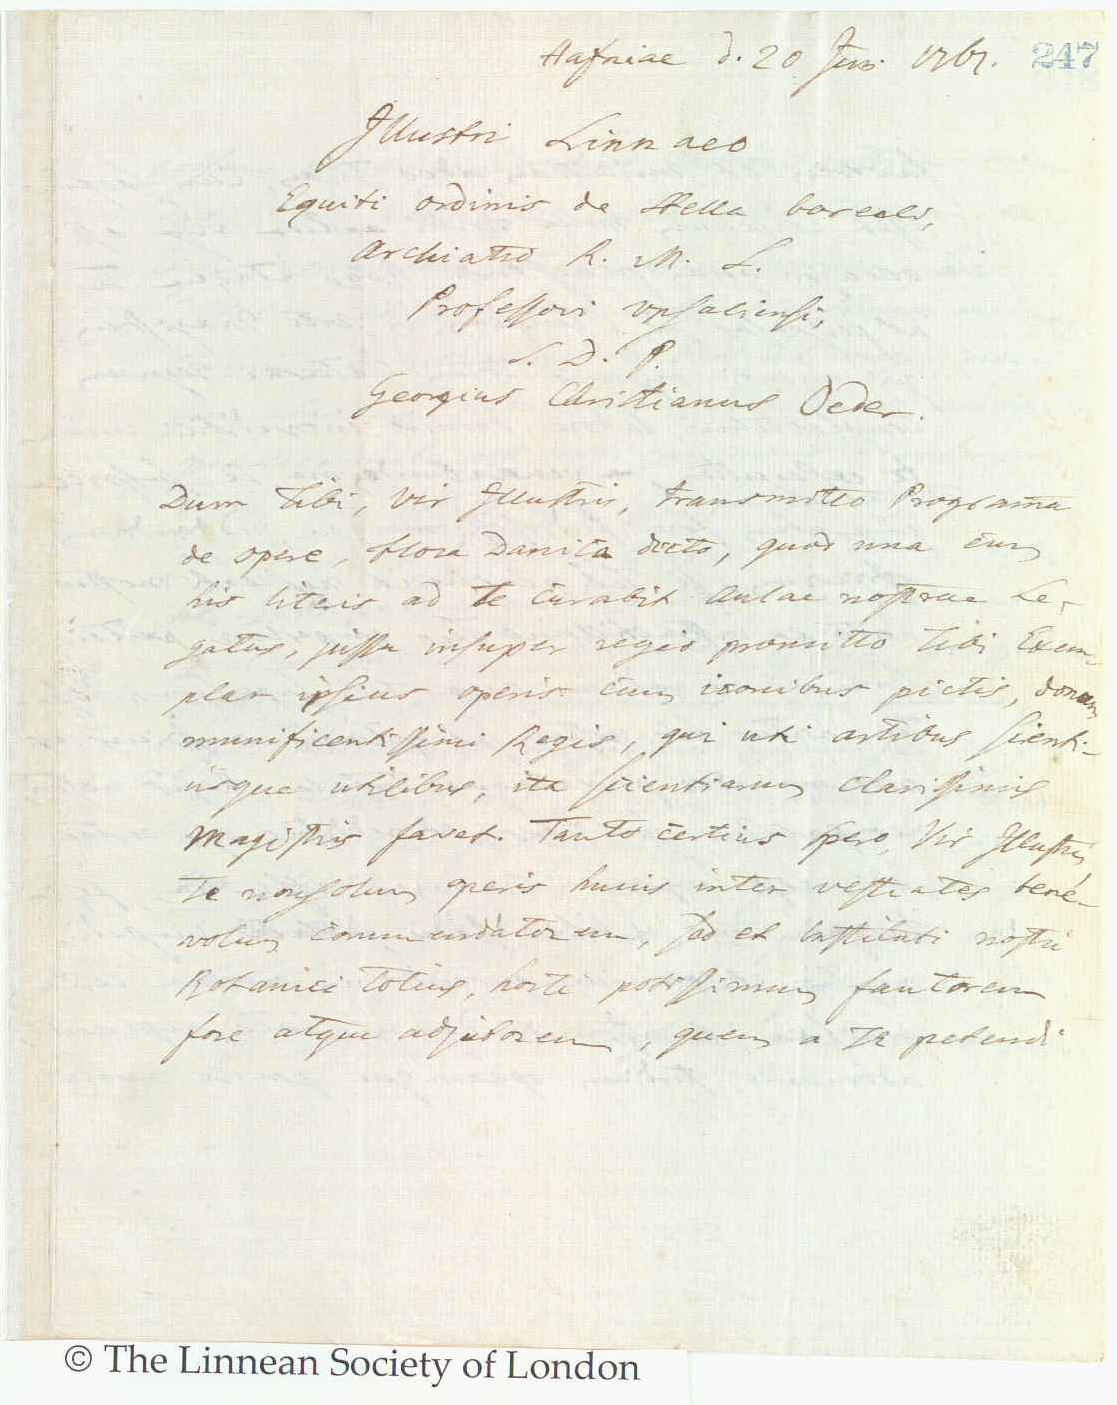 Hafniae d. 20 Jun. 1761. 247
Illustri Linnaeo
Equiti ordinis de stella boreali,
Archiatro R. M. S.
Professori Upsaliensi,
S. D. P.
Georgius Christianus Oeder.
Dum Tibi, Vir Illustris, transmitto Programa
de opere, flora Danica dicto, quod una cum
his literis ad Te curabit Aulae nostrae Le-
gatus, jussu insuper regio promitto Tibi Exem-
plar ipsius operis cum iconibus pictis, donum
munificentissimi Regis, qui uti artibus scienti-
isque utilibus, ita scientiarum clarissimis
Magistris favet. Tanto certius spero, Vir Illustris,
Te non solum operis huius inter vestrates bene-
volum commendatorem, sed et Instituti nostri
Botanici totius, horti potissimum fautorem
fore atque adjutorem, quem a Te petendi
© The Linnean Society of London